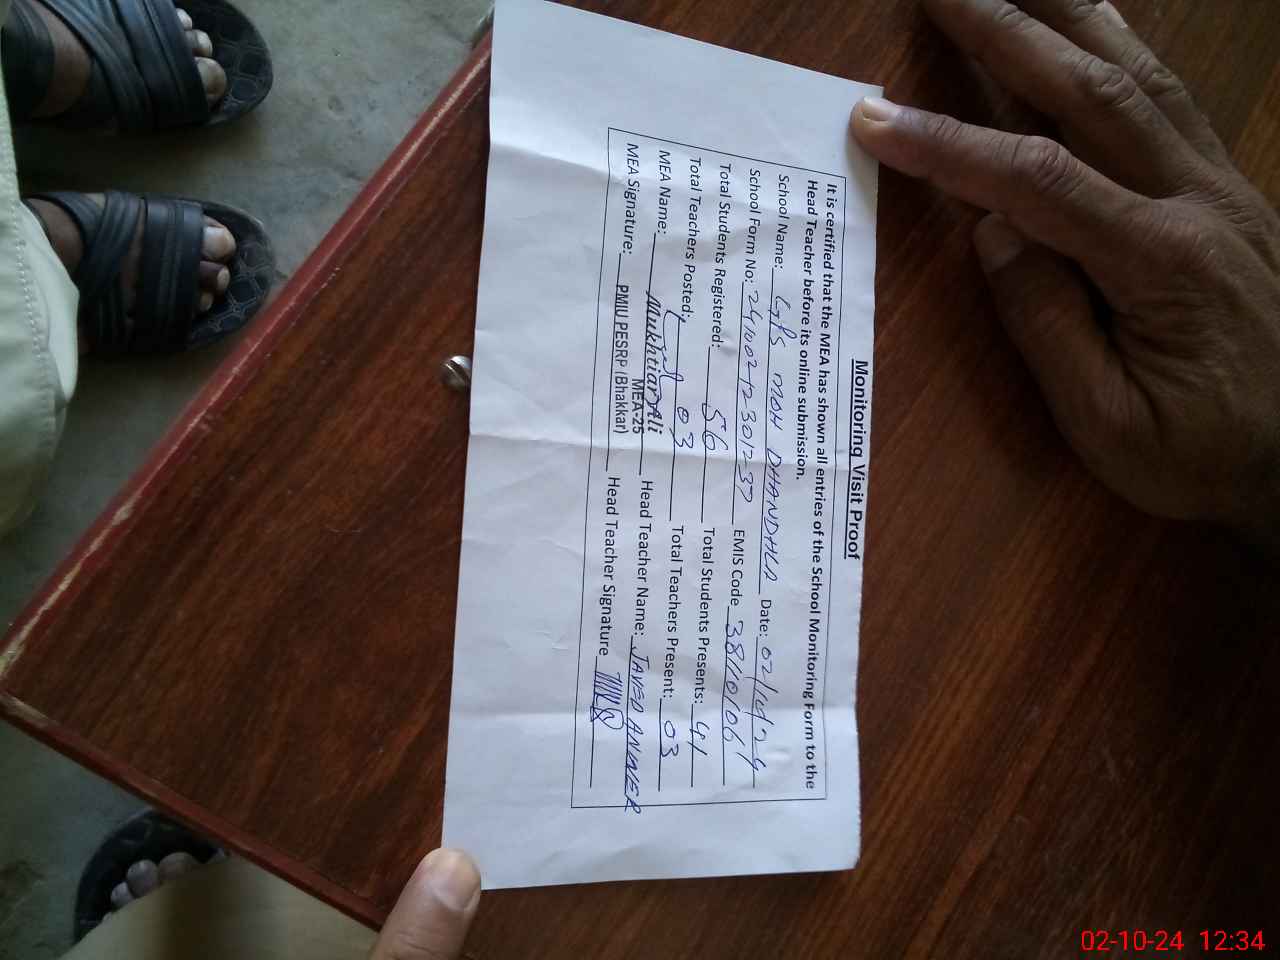 Monitoring Visit Proof
It is certified that the MEA has shown all entries of the School Monitoring Form to the
Head Teacher before its online submission.
School Name: GPS MOH DHANDHLA Date: 02/10/24
School Form No: 24100212301237 EMIS Code 38110106
Total Students Registered: 56 Total Students Presents: 41
Total Teachers Posted: 03 Total Teachers Present: 03
MEA Name: Mukhtiar Ali Head Teacher Name: JAVED ANWER
MEA-25
MEA Signature: PMIU PESRP (Bhakkar) Head Teacher Signature
02-10-24 12:34